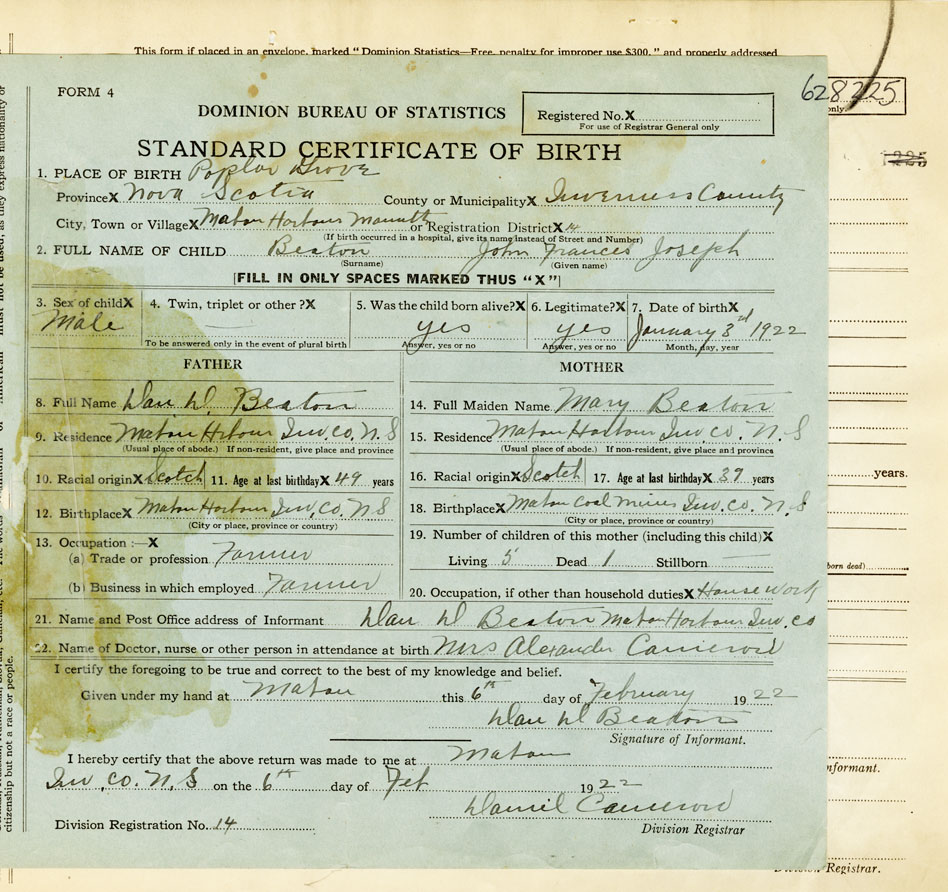 This form if placed in an envelope, marked "Dominion Statistics—Free, penalty for improper use $300," and properly addressed
FORM 4
628225
only.
1225
DOMINION BUREAU OF STATISTICS
Registered No. X
For use of Registrar General only
STANDARD CERTIFICATE OF BIRTH
1. PLACE OF BIRTH Poplar Grove
Province X Nova Scotia County or Municipality X Inverness County
City, Town or Village X Mabou Harbour Mouth or Registration District X 14
(If birth occurred in a hospital, give its name instead of Street and Number)
2. FULL NAME OF CHILD Beaton John Frances Joseph
(Surname) (Given name)
[FILL IN ONLY SPACES MARKED THUS "X"]
3. Sex of child X Male
4. Twin, triplet or other ? X
To be answered only in the event of plural birth
5. Was the child born alive? X yes
Answer, yes or no
6. Legitimate? X yes
Answer, yes or no
7. Date of birth X January 3rd 1922
Month, day, year
FATHER
8. Full Name Dan D Beaton
9. Residence Mabou Harbour Inv. Co. N. S
(Usual place of abode.) If non-resident, give place and province
10. Racial origin X Scotch 11. Age at last birthday X 49 years
12. Birthplace X Mabou Harbour Inv. Co. N S
(City or place, province or country)
13. Occupation :—X
(a) Trade or profession Farmer
(b) Business in which employed Farmer
MOTHER
14. Full Maiden Name Mary Beaton
15. Residence Mabou Harbour Inv. Co. N. S
(Usual place of abode.) If non-resident, give place and province
16. Racial origin X Scotch 17. Age at last birthday X 37 years
18. Birthplace X Mabou Coal Mines Inv. Co. N. S
(City or place, province or country)
19. Number of children of this mother (including this child) X
Living 5 Dead 1 Stillborn
20. Occupation, if other than household duties X House work
21. Name and Post Office address of Informant Dan D Beaton Mabou Harbour Inv. Co
22. Name of Doctor, nurse or other person in attendance at birth Mrs Alexander Cameron
I certify the foregoing to be true and correct to the best of my knowledge and belief.
Given under my hand at Mabou this 6th day of February 1922
Dan D Beaton
Signature of Informant.
I hereby certify that the above return was made to me at Mabou
Inv. Co. N. S on the 6th day of Feb 1922
Daniel Cameron
Division Registrar
Division Registration No. 14
years.
born dead)
nformant.
Registrar.
citizenship but not a race or people.